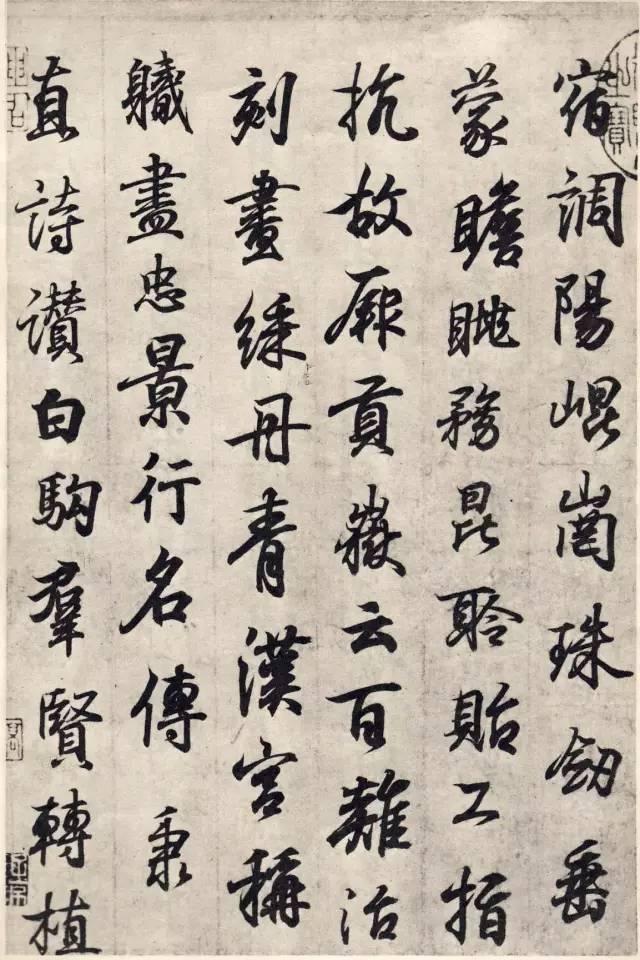 宿調陽崐崗珠劒垂
蒙瞻眺務昆聆貽工指
抗故厥貢嶽云百離治
刻畫綵丹青漢宫稱
軄盡忠景行名傳秉
直詩讃白駒羣賢轉植